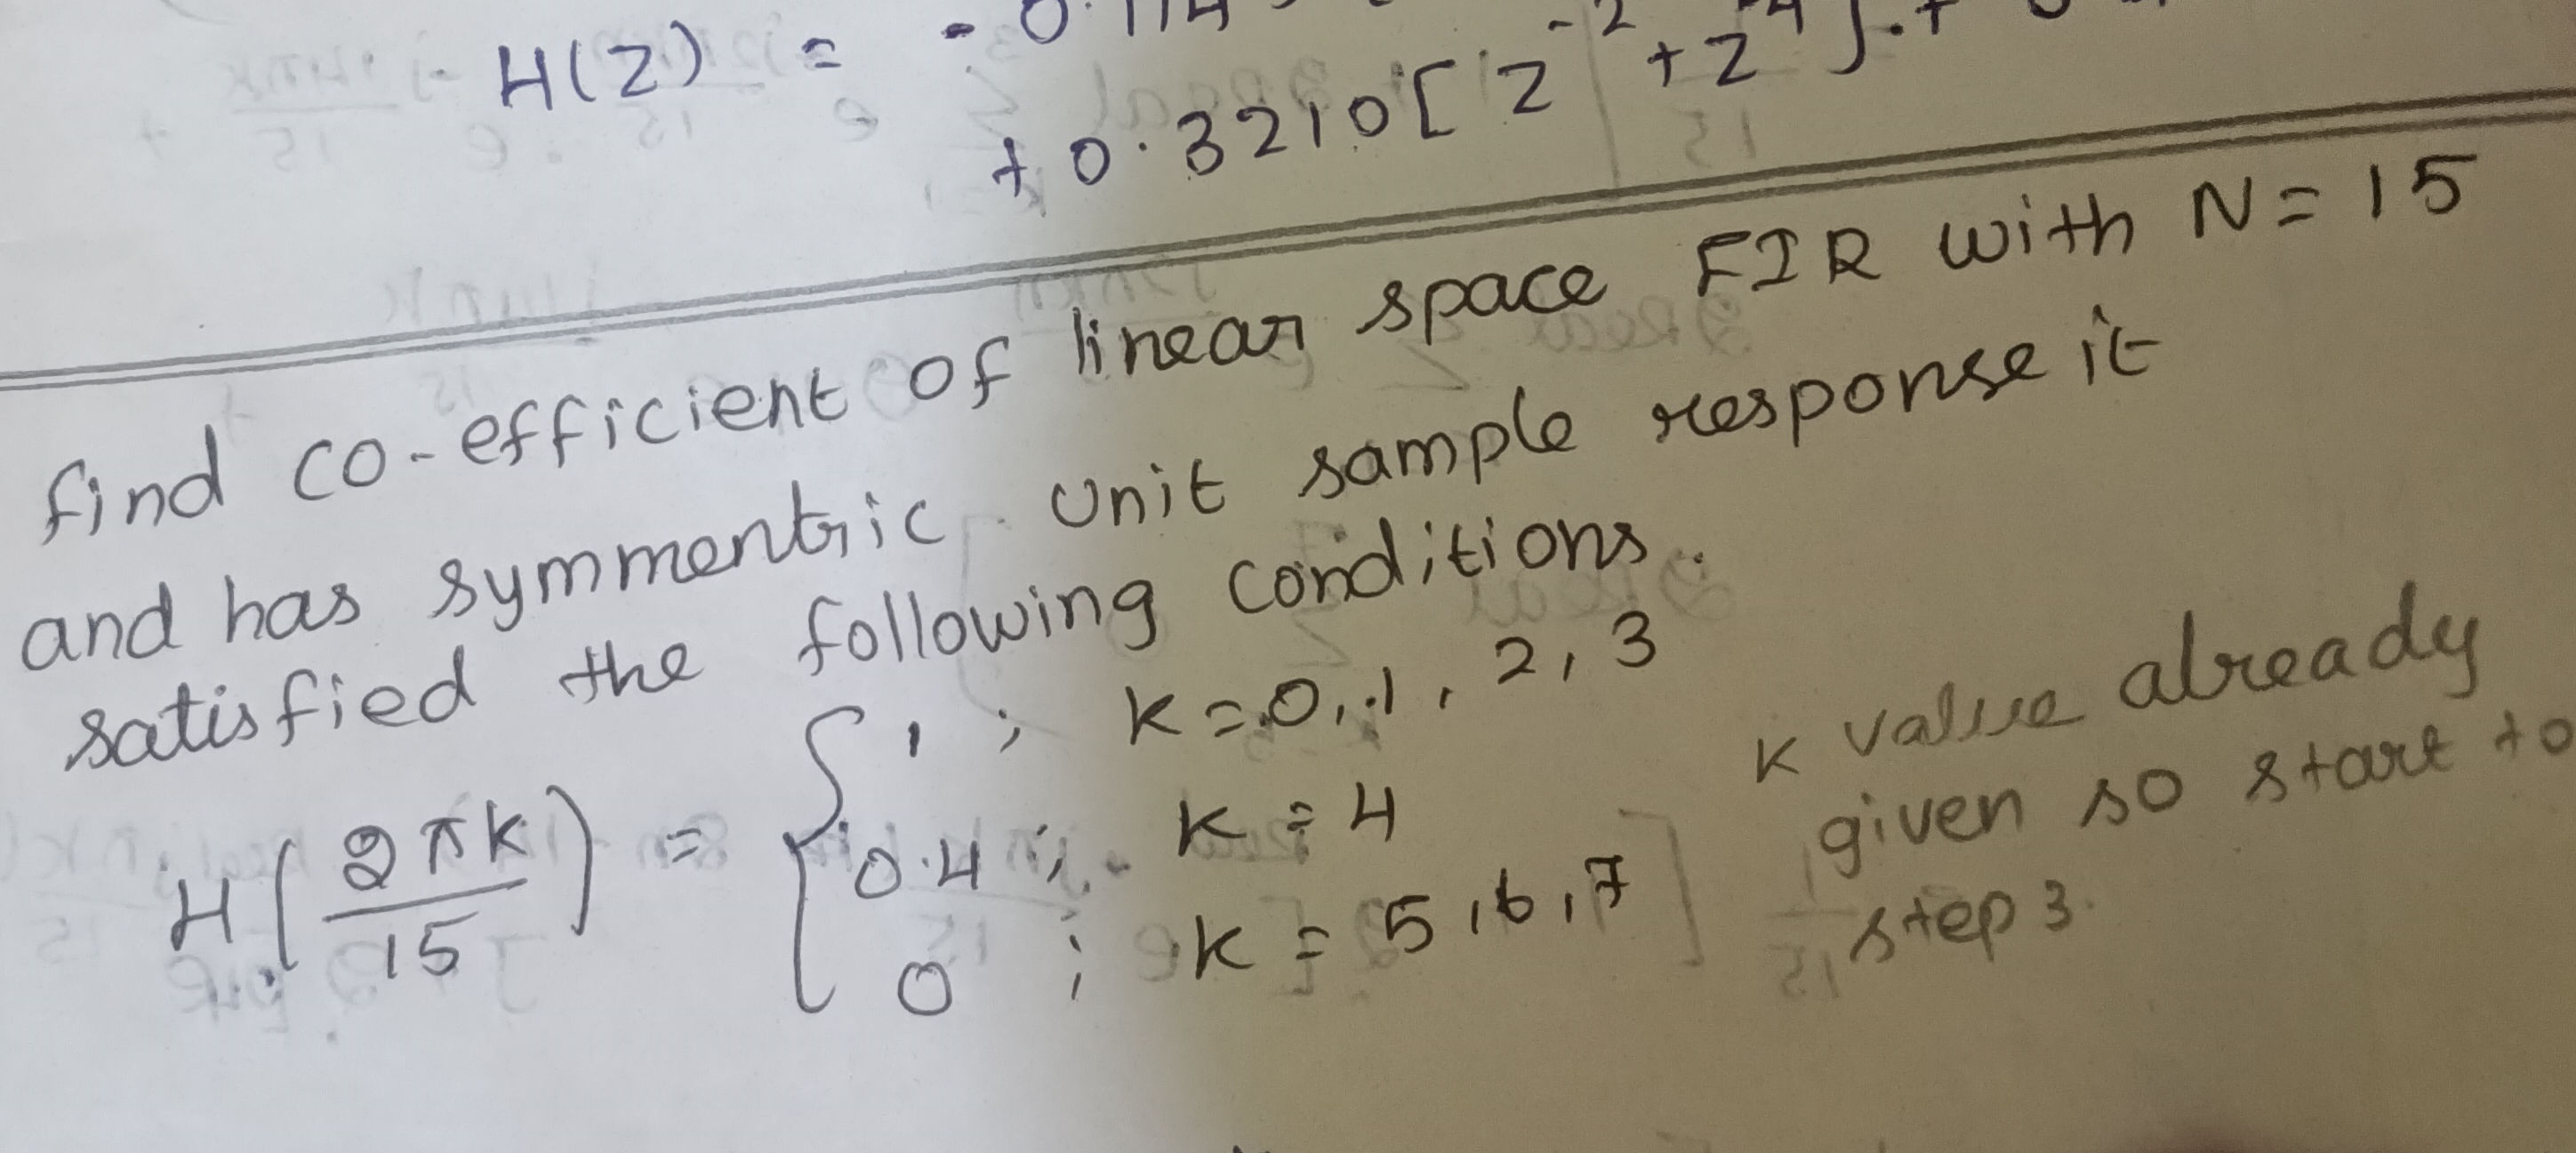 H(Z) = - 0.114
+ 0.3210 [ Z^-2 + Z^-4 ] . +
find co-efficient of linear space FIR with N = 15
and has symmentric unit sample response it
satisfied the following conditions.
H(2πk/15) = { 1 ; K = 0, 1, 2, 3
0.4 ; K = 4
0 ; K = 5, 6, 7
K value already
given so start to
step 3